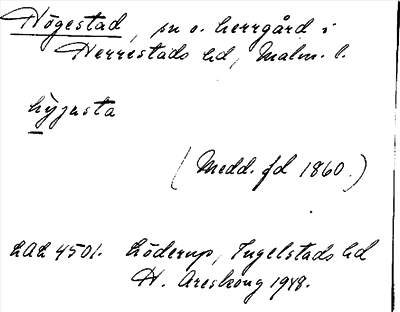 Högestad, sn o. herrgård i
Herrestads hd, Malm. l.
hýjasta
(Medd. fd 1860.)
LAL 4501. Löderup, Ingelstads hd
H. Areskoug 1948.